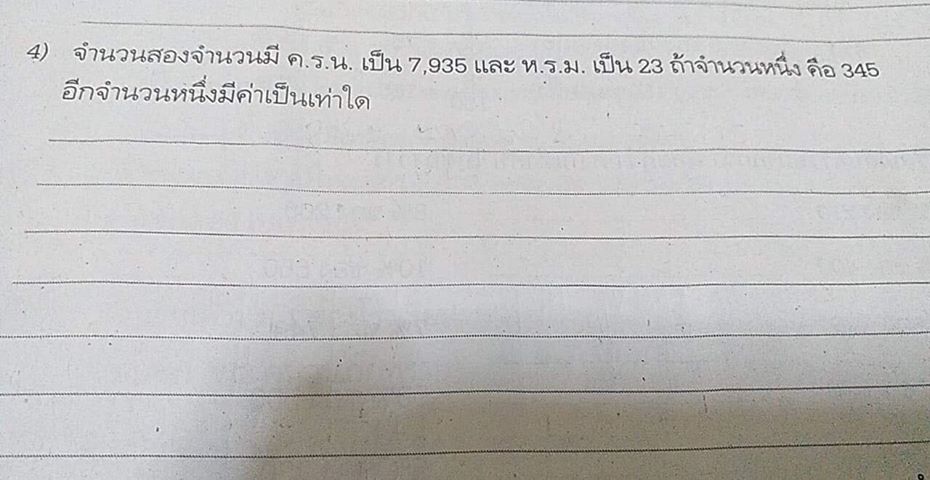 4) จำนวนสองจำนวนมี ค.ร.น. เป็น 7,935 และ ห.ร.ม. เป็น 23 ถ้าจำนวนหนึ่ง คือ 345
อีกจำนวนหนึ่งมีค่าเป็นเท่าใด